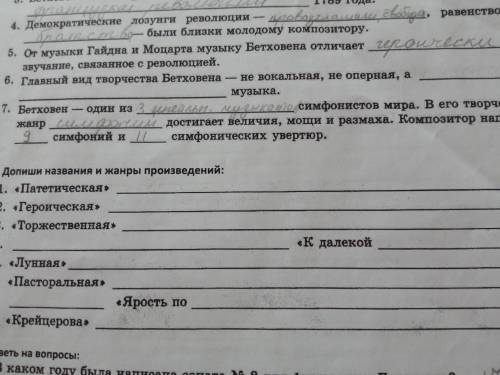 1789 года.
4. Демократические лозунги революции — провозглашали свобода, равенство
братство — были близки молодому композитору.
5. От музыки Гайдна и Моцарта музыку Бетховена отличает героически
звучание, связанное с революцией.
6. Главный вид творчества Бетховена — не вокальная, не оперная, а
музыка.
7. Бетховен — один из симфонистов мира. В его творче
жанр симфонии достигает величия, мощи и размаха. Композитор нап
9 симфоний и 11 симфонических увертюр.
Допиши названия и жанры произведений:
1. «Патетическая»
2. «Героическая»
. «Торжественная»
. «К далекой
. «Лунная»
«Пасторальная»
«Ярость по
«Крейцерова»
веть на вопросы:
В каком году была написана соната № 8 для